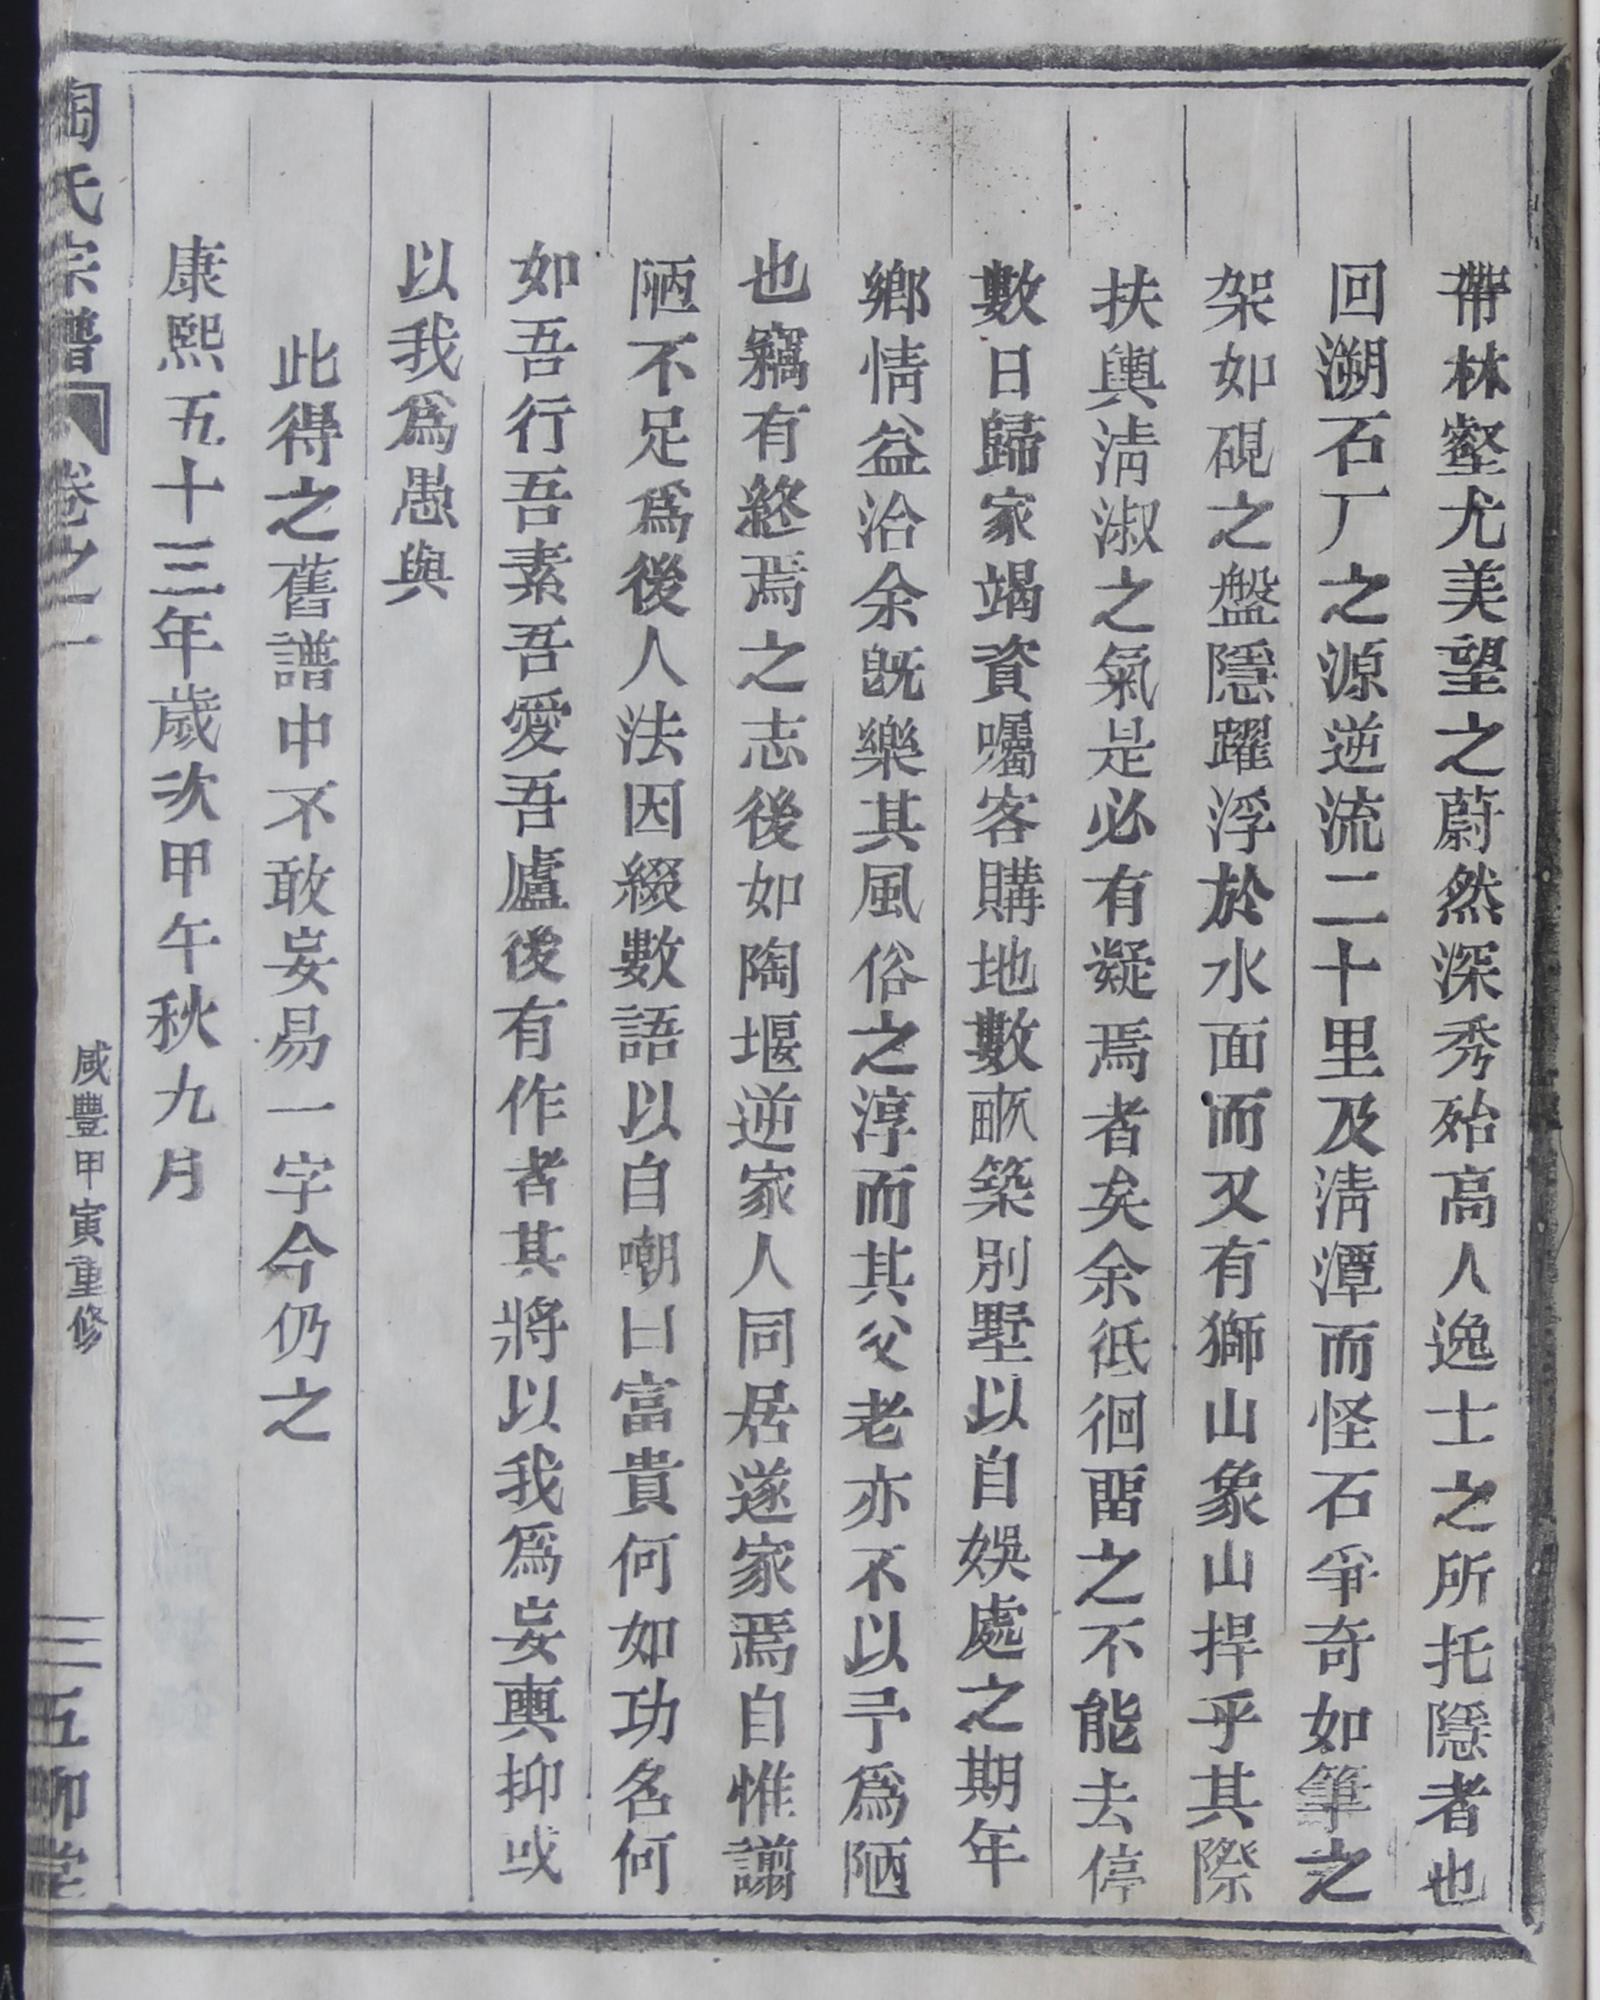 帶林壑尤美望之蔚然深秀殆高人逸士之所托隱者也
回溯石厂之源逆流二十里及淸潭而怪石爭奇如筆之
架如硯之盤隱躍浮於水面而又有獅山象山捍乎其際
扶輿淸淑之氣是必有凝焉者矣余徘徊畱之不能去停
數日歸家竭資囑客購地數畝築別墅以自娛處之期年
鄉情益洽余旣樂其風俗之淳而其父老亦不以予爲陋
也竊有終焉之志後如陶堰逆家人同居遂家焉自惟謭
陋不足爲後人法因綴數語以自嘲曰富貴何如功名何
如吾行吾素吾愛吾廬後有作者其將以我爲妄輿抑或
以我爲愚與
此得之舊譜中不敢妄易一字今仍之
康熙五十三年歲次甲午秋九月
陶氏宗譜 卷之一 咸豐甲寅重修 三 五柳堂